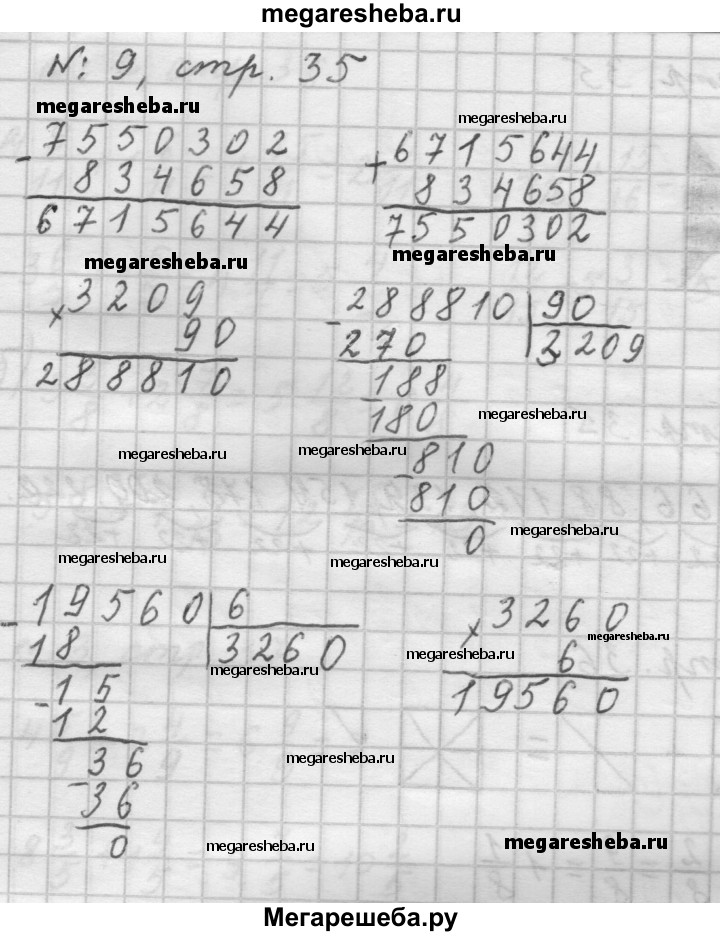 megaresheba.ru
№ 9, стр. 35
megaresheba.ru
megaresheba.ru
- 7550302
834658
6715644
+ 6715644
834658
7550302
megaresheba.ru
megaresheba.ru
× 3209
90
288810
- 288810 | 90
270 3209
188
- 180
810
- 810
0
megaresheba.ru
megaresheba.ru
megaresheba.ru
megaresheba.ru
megaresheba.ru
megaresheba.ru
- 19560 | 6
18 3260
- 15
12
36
- 36
0
× 3260
6
19560
megaresheba.ru
megaresheba.ru
megaresheba.ru
megaresheba.ru
megaresheba.ru
megaresheba.ru
Мегарешеба.ру